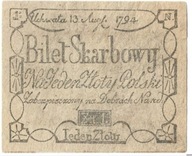 Uchwała 13 Aug. 1794
Bilet Skarbowy
Na Jeden Złoty Polski
Zabezpieczony na Dobrach Naro
Jeden Złotʀ.